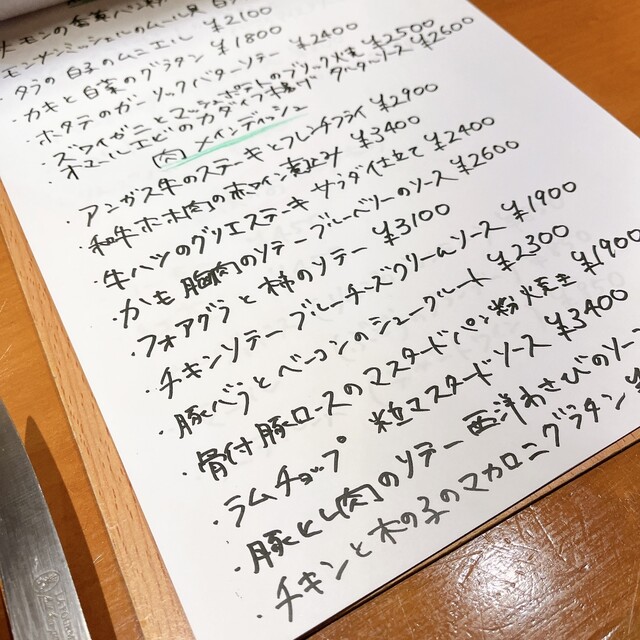 モンサンミッシェルのムール貝 白
・タラの白子のムニエル ¥2100
・カキと白菜のグラタン ¥1800
・ホタテのガーリックバターソテー ¥2400
・ズワイガニとマッシュポテトのブリック焼き ¥2500
・オマールエビのカダイフ揚げ タルタルソース ¥2600
肉 メインディッシュ
・アンガス牛のステーキとフレンチフライ ¥2900
・和牛ホホ肉の赤ワイン煮込み ¥3400
・牛ハツのグリエステーキ サラダ仕立て ¥2400
・かも胸肉のソテーブルーベリーのソース ¥2600
・フォアグラと柿のソテー ¥3100
・チキンソテー ブルーチーズクリームソース ¥1900
・豚バラとベーコンのシュークルート ¥2300
・骨付豚ロースのマスタードパン粉焼き ¥1900
・ラムチョップ 粒マスタードソース ¥3400
・豚ヒレ肉のソテー西洋わさびのソー
・チキンと木の子のマカロニグラタン ¥